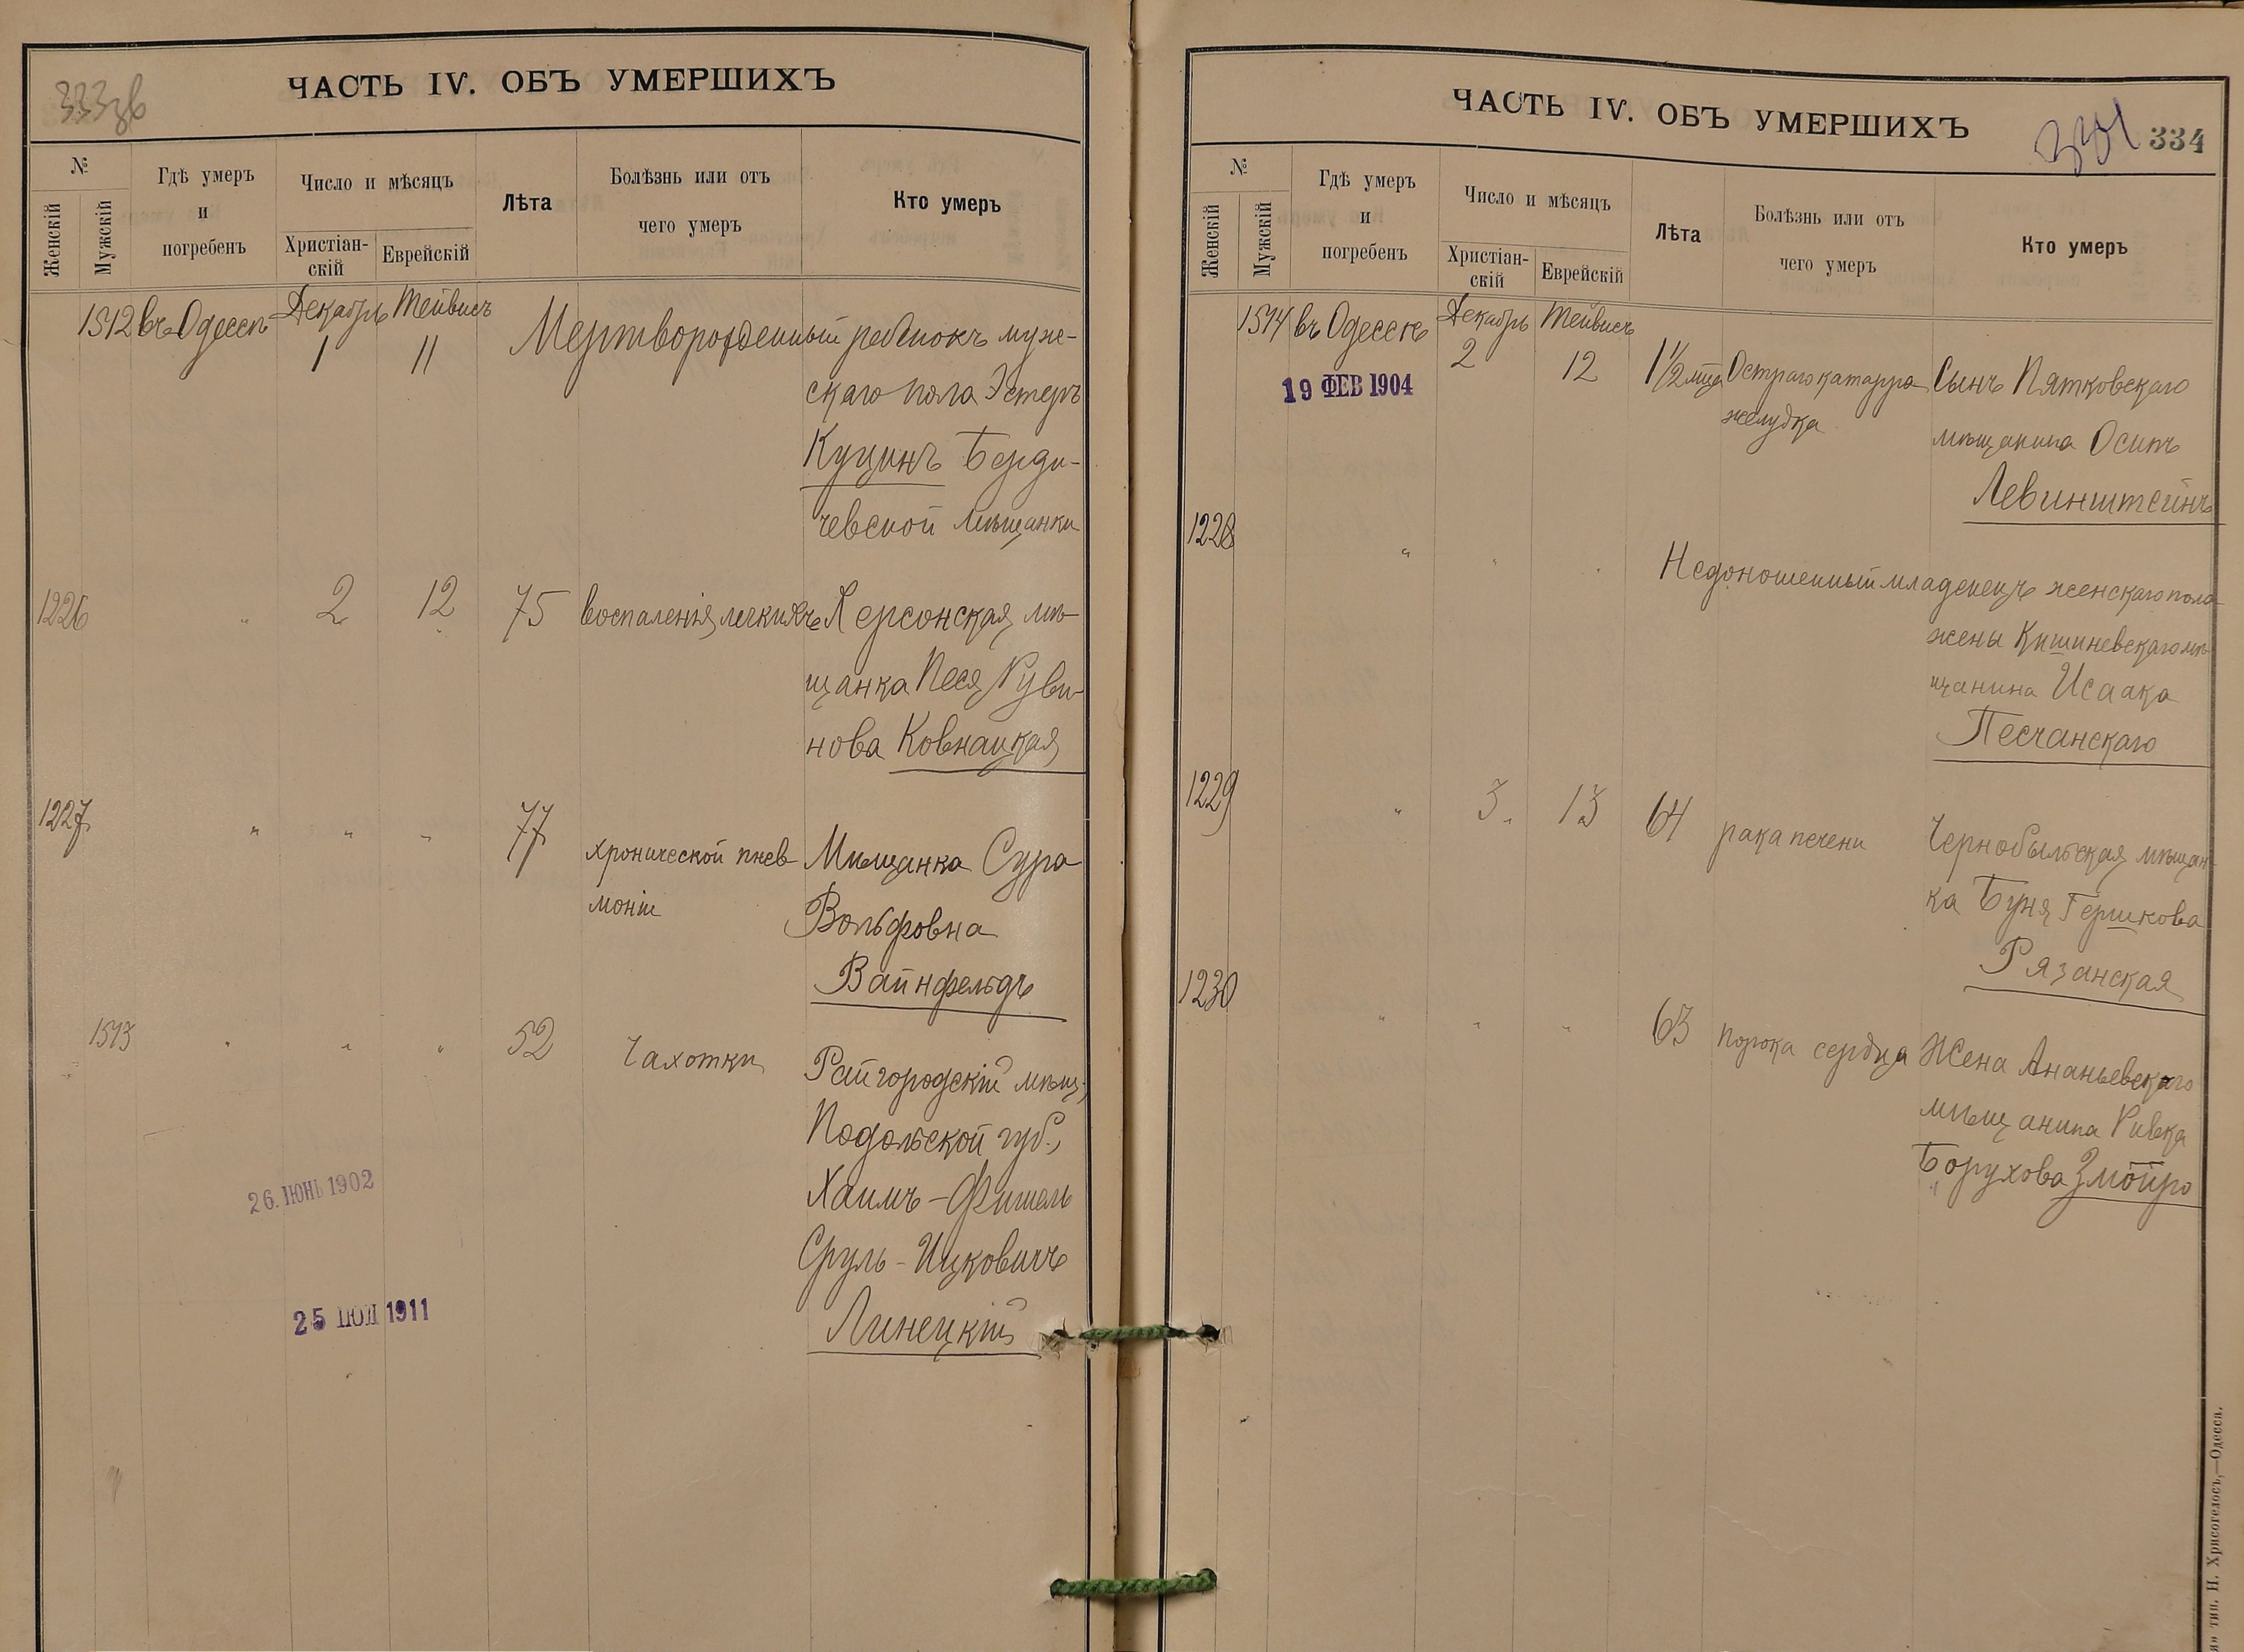 333 зв
ЧАСТЬ IV. ОБЪ УМЕРШИХЪ
№
Женскій
Мужскій
Гдѣ умеръ
и
погребенъ
Число и мѣсяцъ
Христіан-
скій
Еврейскій
Лѣта
Болѣзнь или отъ
чего умеръ
Кто умеръ
1512 въ Одессѣ Декабрь Тейвисъ Мертворожденный ребенокъ муже-
1 11
скаго пола Эстеръ
Куцинъ Берди-
чевской мѣщанки
1226 " 2 12 75 воспаленія легкихъ Херсонская мѣ-
щанка Песя Руви-
нова Ковнацкая
1227 " " " 77 хронической пнев- Мѣщанка Сура
моніи
Вольфовна
Вайнфельдъ
1513 " " " 52 Чахотки Райгородскій мѣщ.
Подольской губ.,
Хаимъ-Фишель
Сруль-Ицковичъ
Линецкій
26. ІЮНЬ 1902
25 ІЮЛ 1911
ЧАСТЬ IV. ОБЪ УМЕРШИХЪ
334
№
Женскій
Мужскій
Гдѣ умеръ
и
погребенъ
Число и мѣсяцъ
Христіан-
скій
Еврейскій
Лѣта
Болѣзнь или отъ
чего умеръ
Кто умеръ
1514 въ Одессѣ Декабрь Тейвисъ
2 12 1 1/2 мѣс Остраго катарра Сынъ Пятковскаго
19 ФЕВ 1904
желудка
мѣщанина Осипъ
Левинштейнъ
1228 " " " Недоношенный младенецъ женскаго пола
жены Кишиневскаго мѣ-
щанина Исаака
Песчанскаго
1229 " 3 " 13 64 рака печени Чернобыльская мѣщан-
ка Буня Гершкова
Рязанская
1230 " " " 63 порока сердца Жена Ананьевскаго
мѣщанина Ривка
Борухова Змойро
тип. Н. Хрисогелосъ,—Одесса.